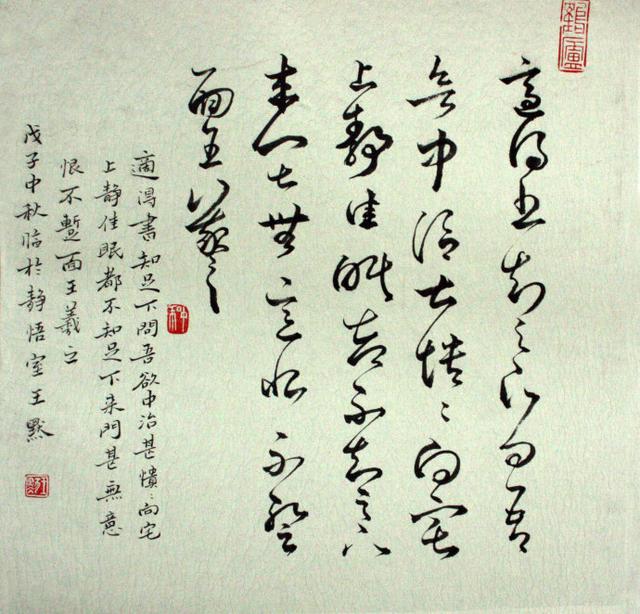 適得書知足下問吾
欲中治甚憒〻向宅
上靜佳眠都不知足下
来門甚無意恨不蹔
面王羲之
適淂書知足下問吾欲中治甚憒〻向宅
上静佳眠都不知足下来門甚無意
恨不蹔面王羲之
戊子中秋临於静悟室王默